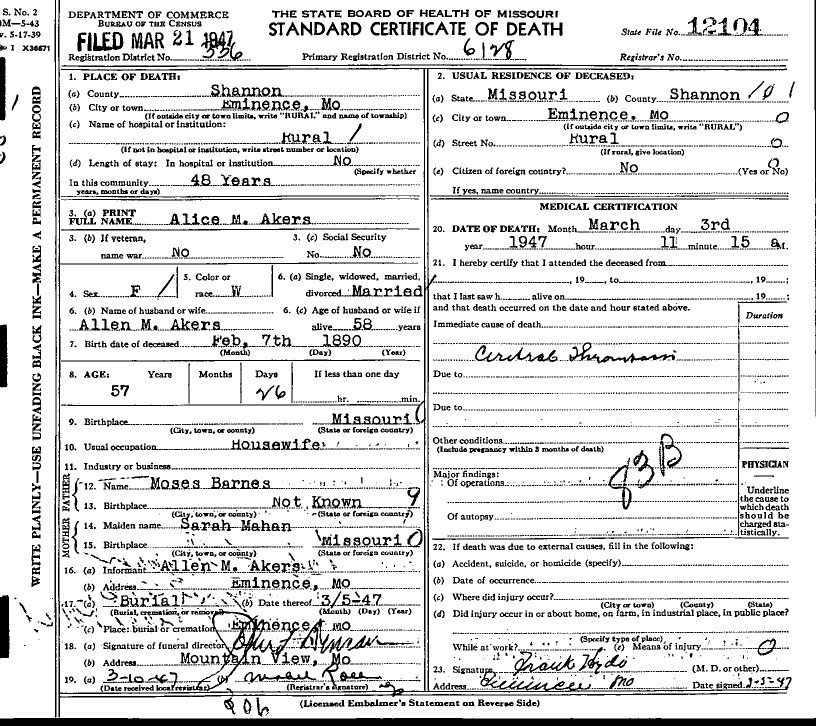 S. No. 2
M—5-43
v. 5-17-39
I X36671
WRITE PLAINLY—USE UNFADING BLACK INK—MAKE A PERMANENT RECORD
DEPARTMENT OF COMMERCE
BUREAU OF THE CENSUS
FILED MAR 21 1947
Registration District No. 336
THE STATE BOARD OF HEALTH OF MISSOURI
STANDARD CERTIFICATE OF DEATH
Primary Registration District No. 6128
State File No. 12104
Registrar's No.
1. PLACE OF DEATH:
(a) County Shannon
(b) City or town Eminence, Mo
(If outside city or town limits, write "RURAL" and name of township)
(c) Name of hospital or institution:
Rural
(If not in hospital or institution, write street number or location)
(d) Length of stay: In hospital or institution No
(Specify whether
In this community 48 Years
years, months or days)
3. (a) PRINT FULL NAME Alice M. Akers
3. (b) If veteran, name war No
3. (c) Social Security No. No
4. Sex F
5. Color or race W
6. (a) Single, widowed, married, divorced Married
6. (b) Name of husband or wife Allen M. Akers
6. (c) Age of husband or wife if alive 58 years
7. Birth date of deceased Feb, 7th 1890
(Month) (Day) (Year)
8. AGE: Years Months Days If less than one day
57 26 hr. min.
9. Birthplace Missouri 0
(City, town, or county) (State or foreign country)
10. Usual occupation Housewife
11. Industry or business
FATHER
12. Name Moses Barnes
13. Birthplace Not Known 9
(City, town, or county) (State or foreign country)
MOTHER
14. Maiden name Sarah Mahan
15. Birthplace Missouri 0
(City, town, or county) (State or foreign country)
16. (a) Informant Allen M. Akers
(b) Address Eminence, Mo
17. (a) Burial (b) Date thereof 3/5-47
(Burial, cremation, or removal) (Month) (Day) (Year)
(c) Place: burial or cremation Eminence, Mo
18. (a) Signature of funeral director
(b) Address Mountain View, Mo
19. (a) 3-10-47 (b)
(Date received local registrar) (Registrar's signature)
906
2. USUAL RESIDENCE OF DECEASED:
(a) State Missouri (b) County Shannon 101
(c) City or town Eminence, Mo 0
(If outside city or town limits, write "RURAL")
(d) Street No. Rural 0
(If rural, give location)
(e) Citizen of foreign country? No (Yes or No) 0
If yes, name country
MEDICAL CERTIFICATION
20. DATE OF DEATH: Month March day 3rd
year 1947 hour 11 minute 15 a.M.
21. I hereby certify that I attended the deceased from
, 19 , to , 19 ;
that I last saw h alive on , 19 ;
and that death occurred on the date and hour stated above.
Duration
Immediate cause of death
Due to
Due to
Other conditions
(Include pregnancy within 3 months of death)
83B
Major findings:
Of operations
Of autopsy
PHYSICIAN
Underline the cause to which death should be charged statistically.
22. If death was due to external causes, fill in the following:
(a) Accident, suicide, or homicide (specify)
(b) Date of occurrence
(c) Where did injury occur?
(City or town) (County) (State)
(d) Did injury occur in or about home, on farm, in industrial place, in public place?
(Specify type of place)
While at work? (e) Means of injury 0
23. Signature Frank Hyde (M. D. or other)
Address Eminence Mo Date signed 3-5-47
(Licensed Embalmer's Statement on Reverse Side)